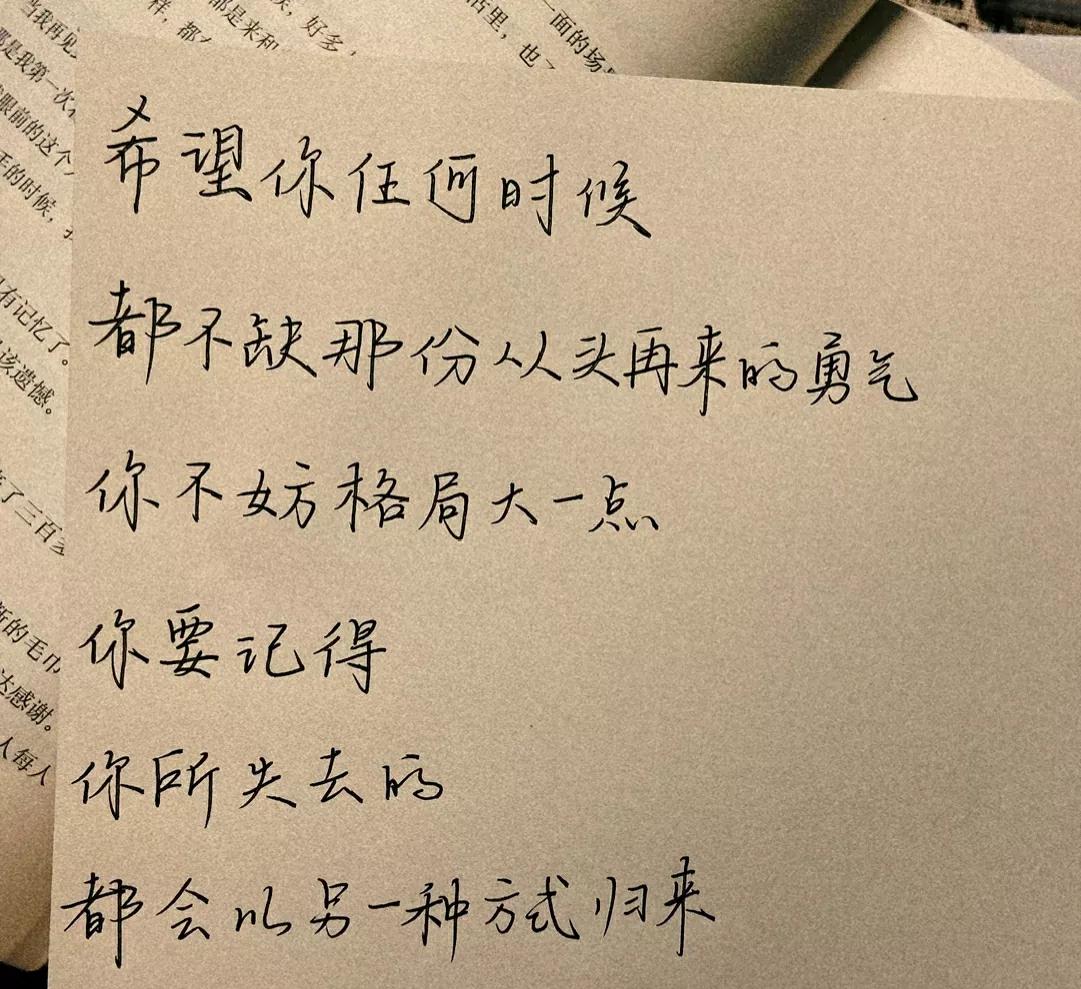 希望你任何时候
都不缺那份从头再来的勇气
你不妨格局大一点
你要记得
你所失去的
都会以另一种方式归来
当我再见
那是我第一次
眼前的这个
手的时候，
有记忆了。
该遗憾。
了三百多
新的毛巾
达感谢。
人每人
样，都
都是来和
好多，
里，也
一面的场